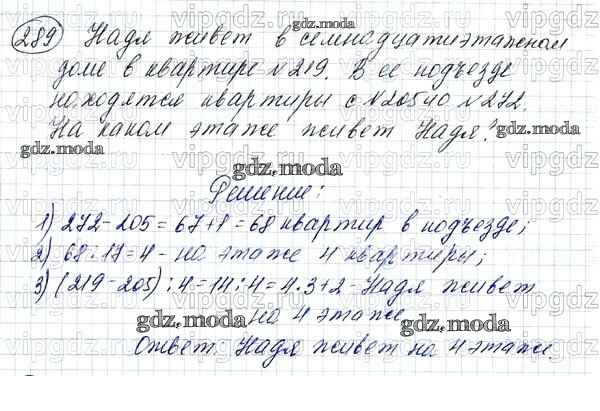 289 Надя живет в семнадцатиэтажном
доме в квартире №219. В ее подъезде
находятся квартиры с №205 по №272.
На каком этаже живет Надя?
gdz.moda
Решение:
1) 272-205=67+1=68 квартир в подъезде;
2) 68:17=4 - на этаже 4 квартиры;
3) (219-205):4=14:4=4.3+2-Надя живет
на 4 этаже.
Ответ: Надя живет на 4 этаже.